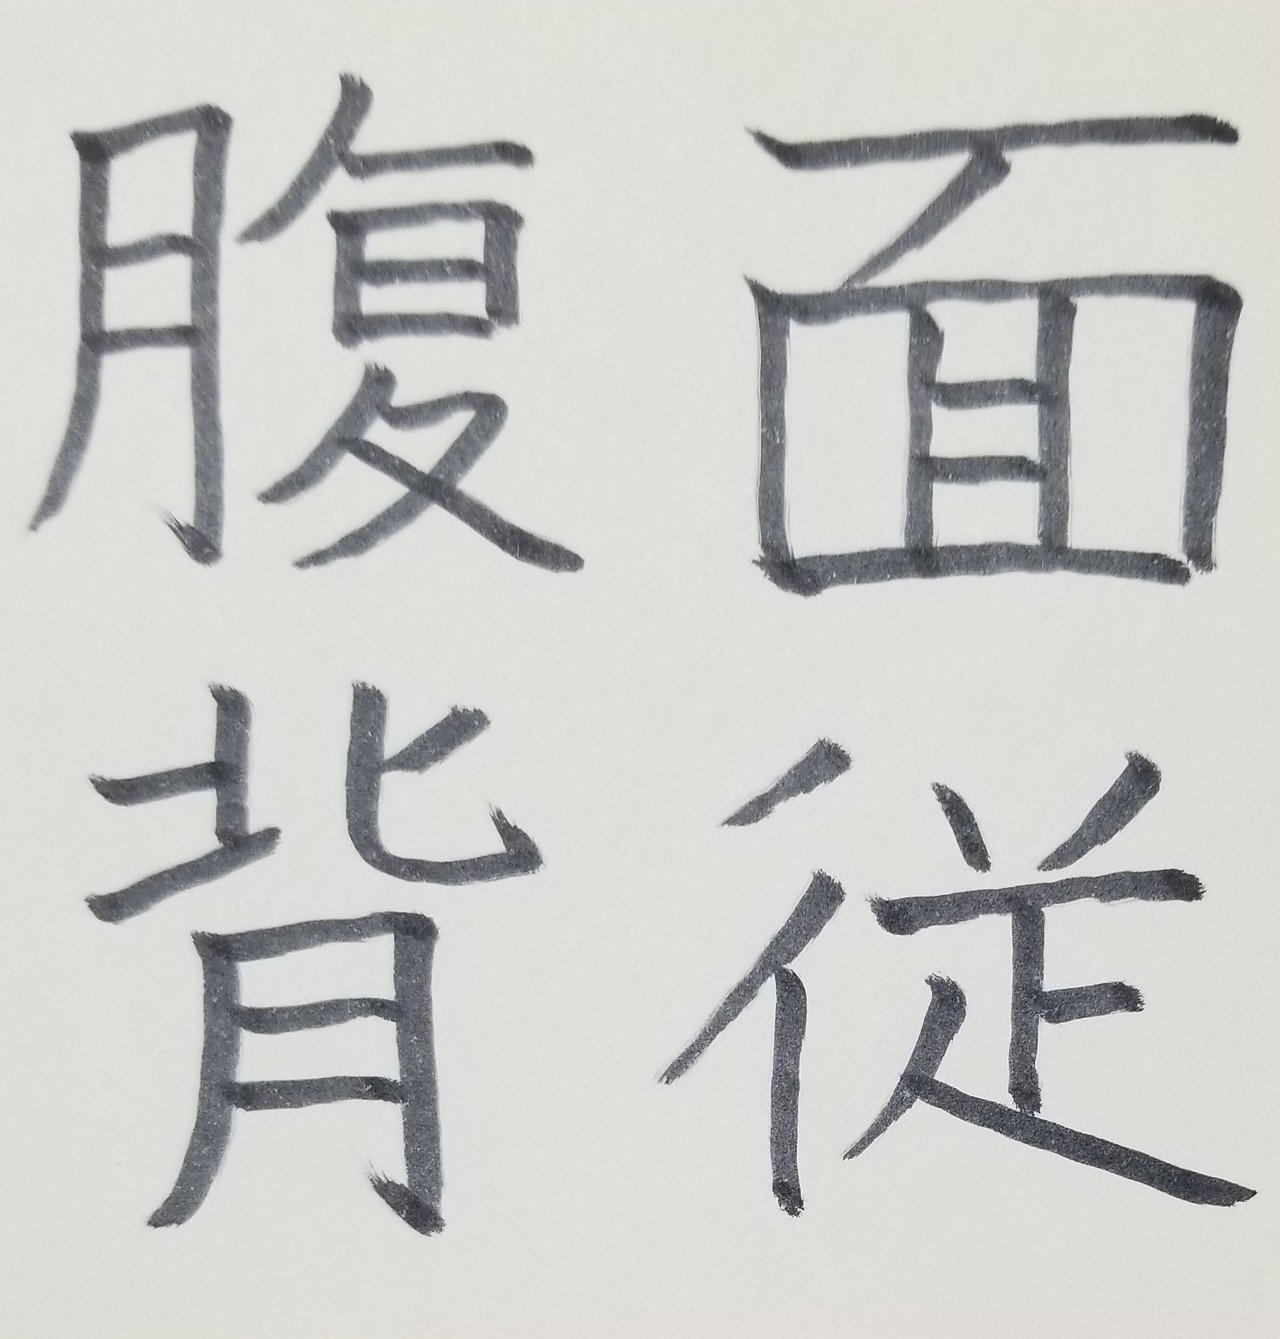 面従
腹背